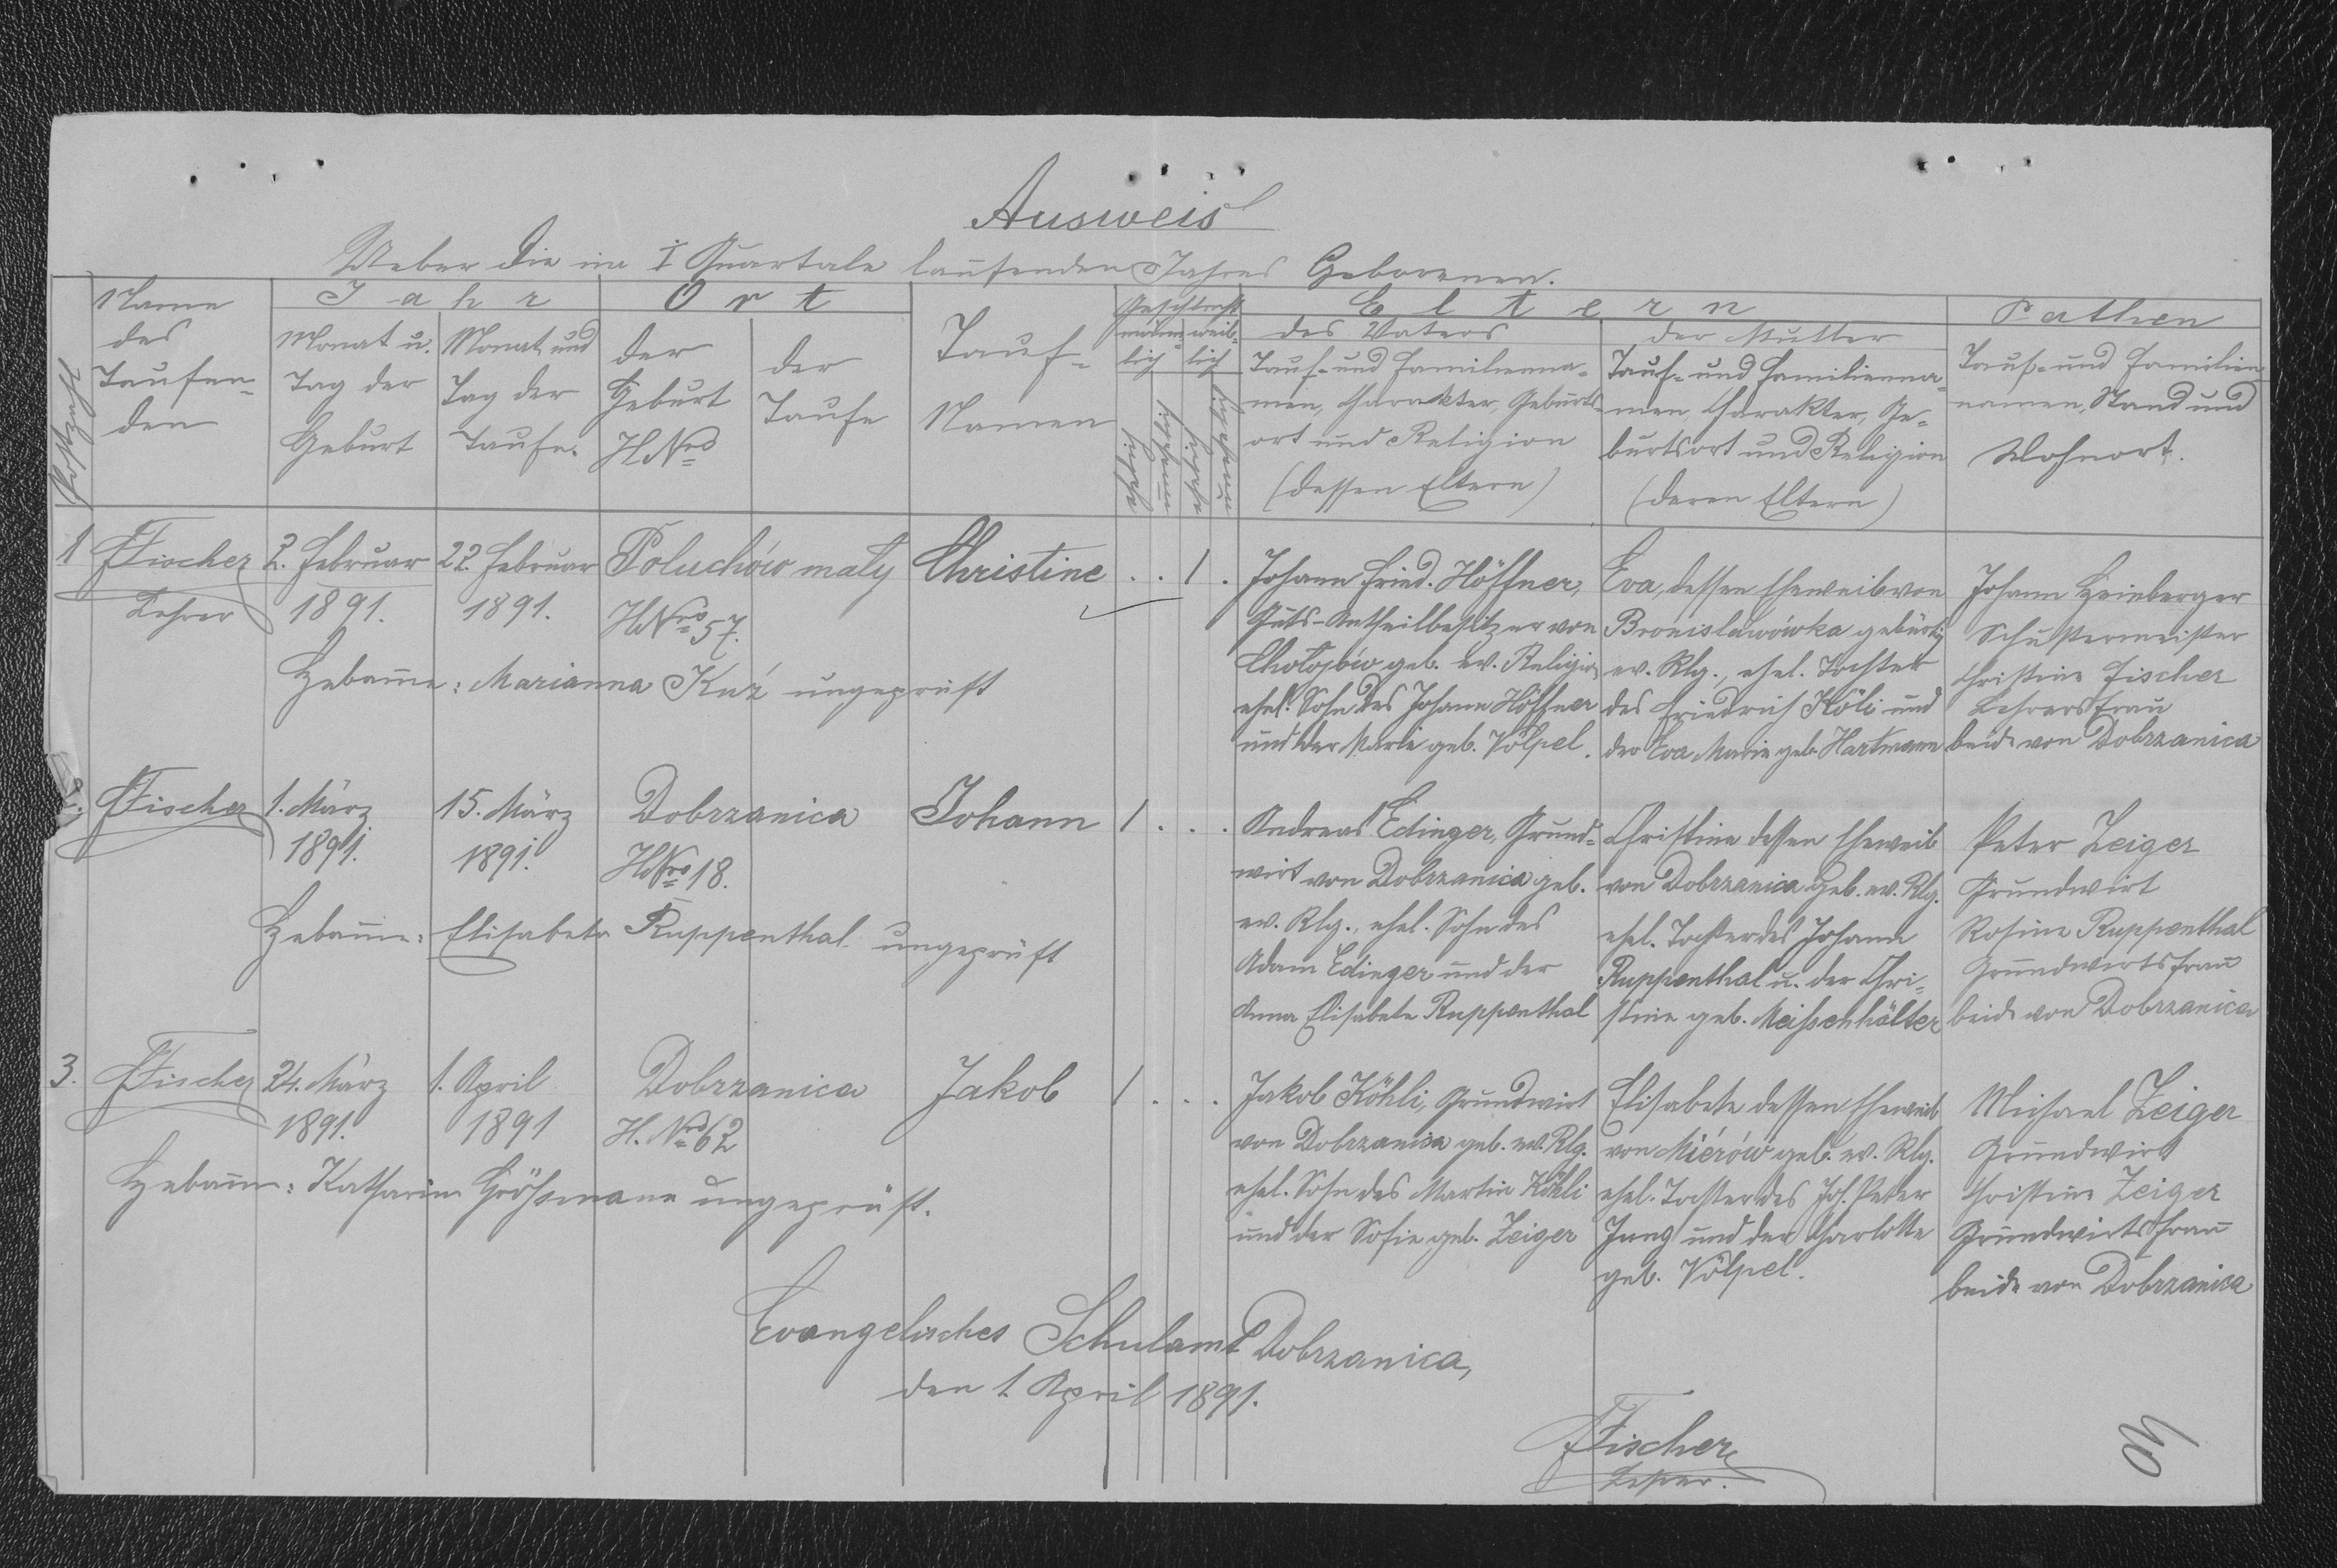 Ausweis
Ueber die im I Quartale laufenden Jahres Geborenen.
Postzahl
Name
des
Taufen-
den
Jahr
Monat u.
Tag der
Geburt
Monat und
Tag der
Taufe.
Ort
der
Geburt
H.Nro
der
Taufe
Tauf-
Namen
Geschlecht
männ-
lich
weib-
lich
ehelich
unehelich
ehelich
unehelich
Eltern
des Vaters
Tauf- und Familienna-
men, Charakter, Geburts-
ort und Religion
(dessen Eltern)
der Mutter
Tauf- und Familienna-
men, Charakter, Ge-
burtsort und Religion
(deren Eltern)
Pathen
Tauf- und Familien-
namen, Stand und
Wohnort.
1
Fischer
Lehrer
2. Februar
1891.
22. Februar
1891.
Poluchów mały
H.Nro 57.
Christine
. . 1 .
Johann Fried. Höffner,
Guts-Antheilbesitzer von
geb. ev. Religion
ehel. Sohn des Johann Höffner
und der Marie geb. Völpel.
Eva, dessen Eheweib von
Bronislawówka gebürtig
ev. Rlg., ehel. Tochter
des Friedrich Köli und
der Eva Marie geb. Hartmann
Johann Heinberger
Schustermeister
Christine Fischer
Lehrersfrau
beide von Dobrzanica
Hebamme: Marianna Kuź ungeprüft
2.
Fischer
1. März
1891.
15. März
1891.
Dobrzanica
H.Nro 18.
Johann
1 . . .
Andreas Edinger, Grund-
wirt von Dobrzanica geb.
ev. Rlg., ehel. Sohn des
Adam Edinger und der
Anna Elisabeta Ruppenthal
Christine dessen Eheweib
von Dobrzanica geb. ev. Rlg.
ehel. Tochter des Johann
Ruppenthal u. der Chri-
stine geb. Meißenhälter
Peter Zeiger
Grundwirt
Rosine Ruppenthal
Grundwirtsfrau
beide von Dobrzanica
Hebamme: Elisabeta Ruppenthal ungeprüft
3.
Fischer
24. März
1891.
1. April
1891
Dobrzanica
H. Nro 62
Jakob
1 . . .
Jakob Köhli, Grundwirt
von Dobrzanica geb. ev. Rlg.
ehel. Sohn des Martin Köhli
und der Sofie geb. Zeiger
Elisabete dessen Eheweib
von Miérów geb. ev. Rlg.
ehel. Tochter des Joh. Peter
Jung und der Charlotte
geb. Völpel.
Michael Zeiger
Grundwirt
Christine Zeiger
Grundwirtsfrau
beide von Dobrzanica
Hebamme: Katharina Größmann ungeprüft.
Evangelisches Schulamt Dobrzanica,
den 1. April 1891.
Fischer
Lehrer.